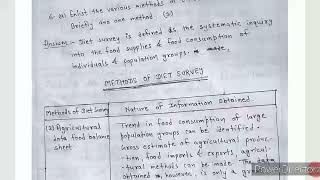 6. (a) Enlist the various methods of
Briefly any one method (3)
Answer:- Diet survey is defined as the systematic inquiry
into the food supplies & food consumption of
individuals & population groups.
METHODS OF DIET SURVEY
Methods of Diet Survey Nature of Information Obtained.
(a) Agricultural Trend in food consumption of large
data food balance population groups can be identified.
sheet Gross estimate of agricultural produc-
tion, food imports & exports, agricul-
tural methods can be made. The data
obtained, however, is only a
PowerDirector